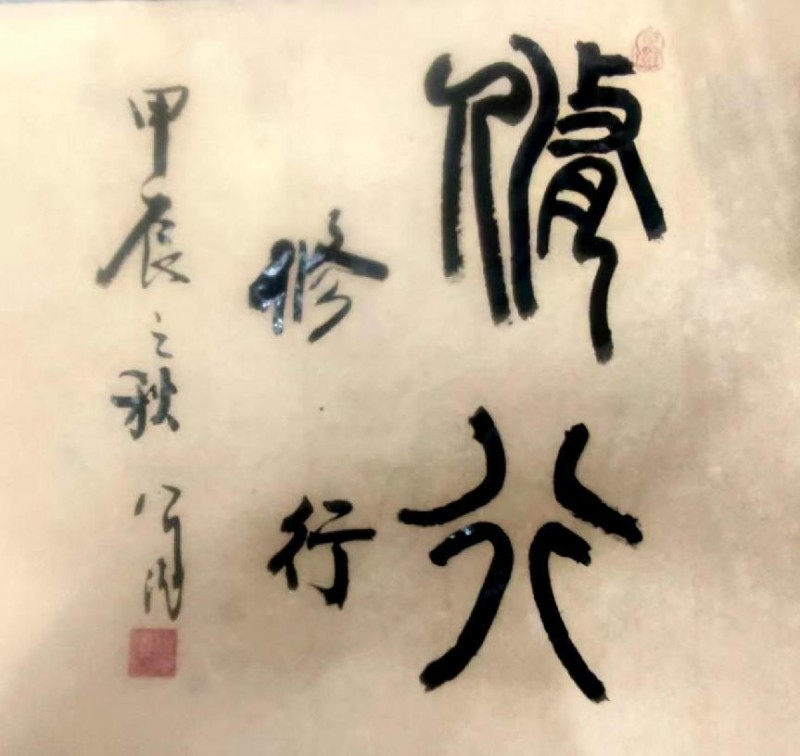 脩行
修行
甲辰之秋